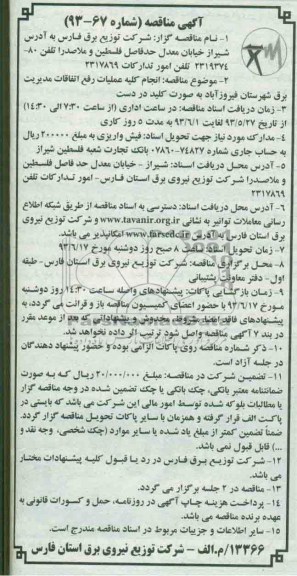 آگهی مناقصه (شماره ۶۷-۹۳)
۱- نام مناقصه گزار: شرکت توزیع برق فارس به آدرس
شیراز خیابان معدل حدفاصل فلسطین و ملاصدرا تلفن ۸۰-
۲۳۱۹۳۷۴ تلفن امور تدارکات ۲۳۱۷۸۶۹
۲- موضوع مناقصه: انجام کلیه عملیات رفع اتفاقات مدیریت
برق شهرستان فیروزآباد به صورت کلید در دست
۳- زمان دریافت اسناد مناقصه: در ساعت اداری (از ساعت ۷:۳۰ الی ۱۴:۳۰)
از تاریخ ۹۳/۵/۲۷ لغایت ۹۳/۶/۱ به مدت ۵ روز کاری
۴- مدارک مورد نیاز جهت تحویل اسناد: فیش واریزی به مبلغ ۲۰۰۰۰۰ ریال
به حساب جاری شماره ۰۷۸۶۰-۷۴۸۲۷ بانک تجارت شعبه فلسطین شیراز
۵- آدرس محل دریافت اسناد: شیراز - خیابان معدل حد فاصل فلسطین
و ملاصدرا شرکت توزیع نیروی برق استان فارس- امور تدارکات تلفن
۲۳۱۷۸۶۹
۶- آدرس محل دریافت اسناد: دسترسی به اسناد مناقصه از طریق شبکه اطلاع
رسانی معاملات توانیر به نشانی www.tavanir.org.ir و شرکت توزیع نیروی
برق استان فارس به آدرس www.farsedc.ir امکانپذیر می باشد.
۷- زمان تحویل اسناد ساعت ۸ صبح روز دوشنبه مورخ ۹۳/۶/۱۷
۸- محل برگزاری مناقصه: شرکت توزیع نیروی برق استان فارس- طبقه
اول- دفتر معاونت پشتیبانی
۹- زمان بازگشایی پاکات: پیشنهادهای واصله ساعت ۱۴:۳۰ روز دوشنبه
مورخ ۹۳/۶/۱۷ با حضور اعضای کمیسیون مناقصه باز و قرائت می گردد، به
پیشنهادهای فاقد امضا، مشروط، مخدوش و پیشنهاداتی که بعد از موعد مقرر
در بند ۷ آگهی مناقصه واصل شود ترتیب اثر داده نخواهد شد.
۱۰- ذکر شماره مناقصه روی پاکات الزامی بوده و حضور پیشنهاد دهندگان
در جلسه آزاد است.
۱۱- تضمین شرکت در مناقصه: مبلغ ۲۰/۰۰۰/۰۰۰ ریال که به صورت
ضمانتنامه معتبر بانکی، چک بانکی یا چک تضمین شده در وجه مناقصه گزار
یا مطالبات بلوکه شده توسط امور مالی این شرکت می باشد که بایستی در
پاکت الف قرار گرفته و همزمان با سایر پاکات تحویل مناقصه گزار گردد.
ضمناً تضمین کمتر از مبلغ یاد شده یا سایر موارد (چک شخصی، وجه نقد و
...) قابل قبول نمی باشد.
۱۲- شرکت توزیع برق فارس در رد یا قبول کلیه پیشنهادات مختار
می باشد.
۱۳- مناقصه در ۲ جلسه برگزار می گردد.
۱۴- پرداخت هزینه چاپ آگهی در روزنامه، حمل و کسورات قانونی به
عهده برنده مناقصه می باشد.
۱۵- سایر اطلاعات و جزییات مربوط در اسناد مناقصه مندرج است.
۱۳۳۶۶/م.الف - شرکت توزیع نیروی برق استان فارس